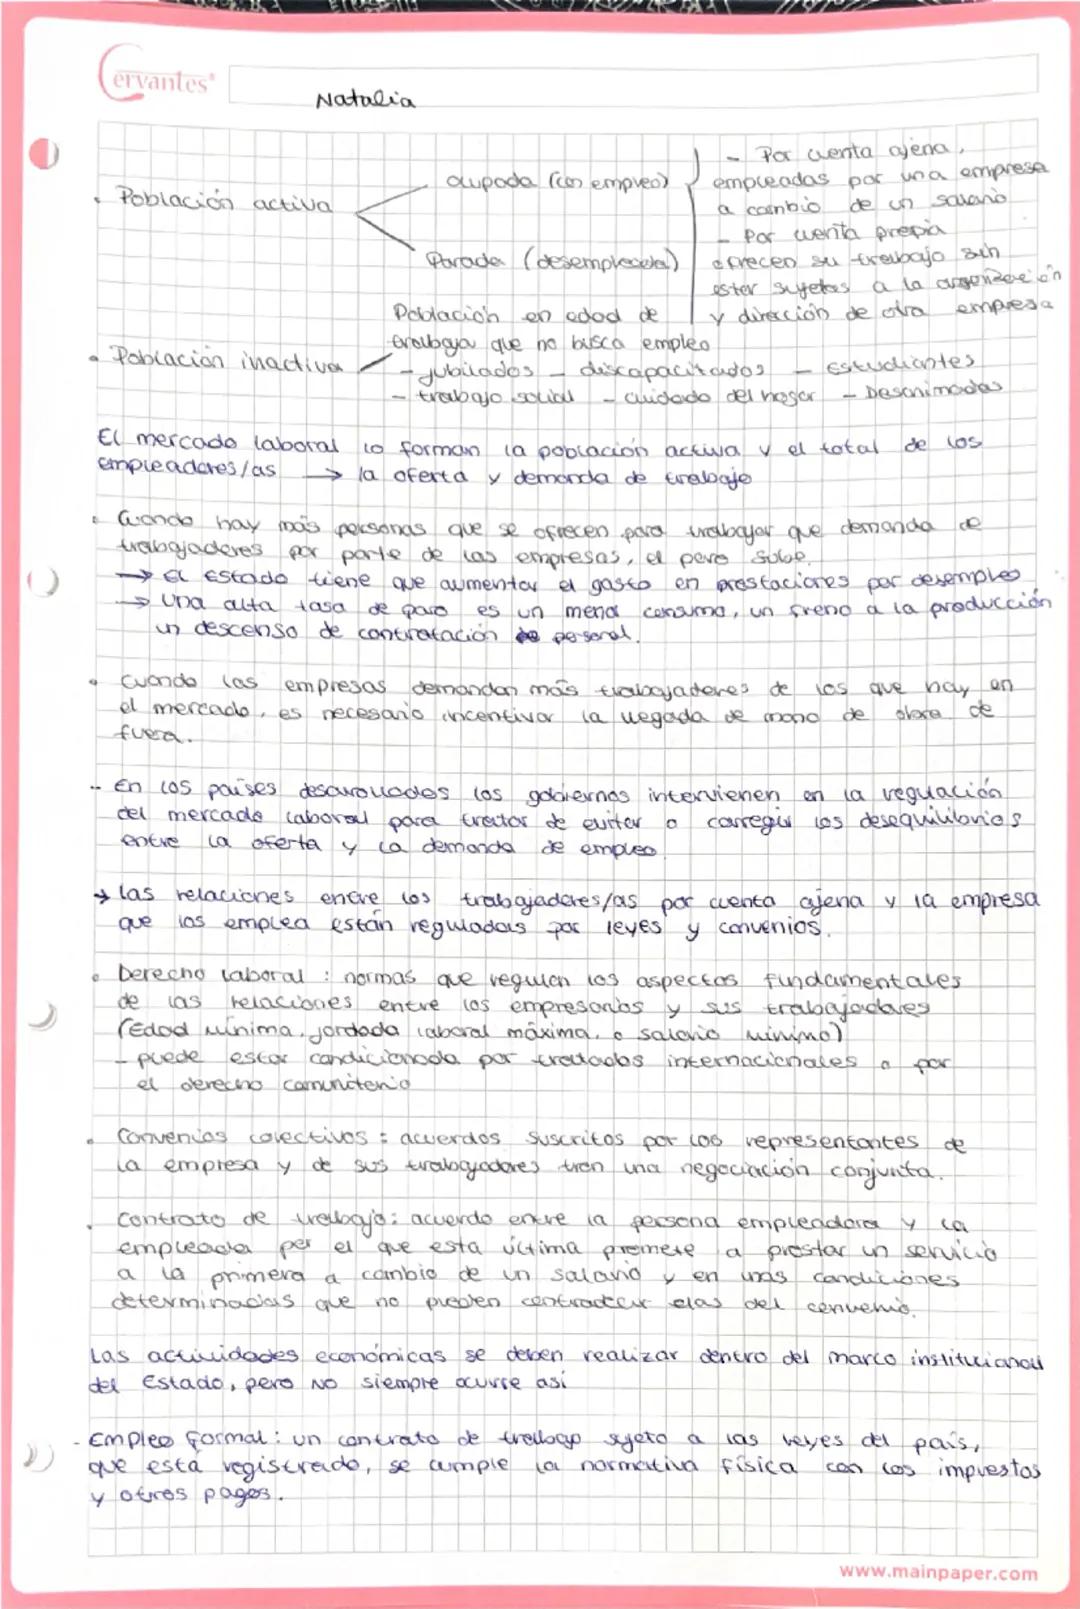 Cervantes
Natalia
• Población activa
ocupada (con empleo)
Parada (desempleada)
- Por cuenta ajena,
empleadas por una empresa
a cambio de un salario
- Por cuenta propia
ofrecen su trabajo sin
estar sujetas a la organización
y dirección de otra empresa
• Población inactiva
Población en edad de
trabaja que no busca empleo
- jubilados - discapacitados - Estudiantes
- trabajo social - cuidado del hogar - Desanimados
El mercado laboral lo forman la población activa y el total de los
empleadores/as → la oferta y demanda de trabajo
• Cuando hay más personas que se ofrecen para trabajar que demanda de
trabajadores por parte de las empresas, el paro sube.
→ El Estado tiene que aumentar el gasto en prestaciones por desempleo
→ Una alta tasa de paro es un menor consumo, un freno a la producción
un descenso de contratación de personal.
• Cuando las empresas demandan más trabajadores de los que hay en
el mercado, es necesario incentivar la llegada de mano de obra de
fuera.
- En los países desarrollados los gobiernos intervienen en la regulación
del mercado laboral para tratar de evitar o corregir los desequilibrios
entre la oferta y la demanda de empleo
→ las relaciones entre los trabajadores/as por cuenta ajena y la empresa
que los emplea están regulados por leyes y convenios.
• Derecho laboral : normas que regulan los aspectos fundamentales
de las relaciones entre los empresarios y sus trabajadores
(Edad mínima, jordada laboral máxima, o salario mínimo)
- puede estar condicionada por tratados internacionales o por
el derecho comunitario
• Convenios colectivos : acuerdos suscritos por los representantes de
la empresa y de sus trabajadores tran una negociación conjunta.
• Contrato de trabajo: acuerdo entre la persona empleadora y la
empleada por el que esta última promete a prestar un servicio
a la primera a cambio de un salario y en unas condiciones
determinadas que no pueden contradecir elas del convenio.
Las actividades económicas se deben realizar dentro del marco institucional
del Estado, pero no siempre ocurre así
- Empleo formal : un contrato de trabajo sujeto a las leyes del país,
que está registrado, se cumple la normativa física con los impuestos
y otros pagos.
www.mainpaper.com